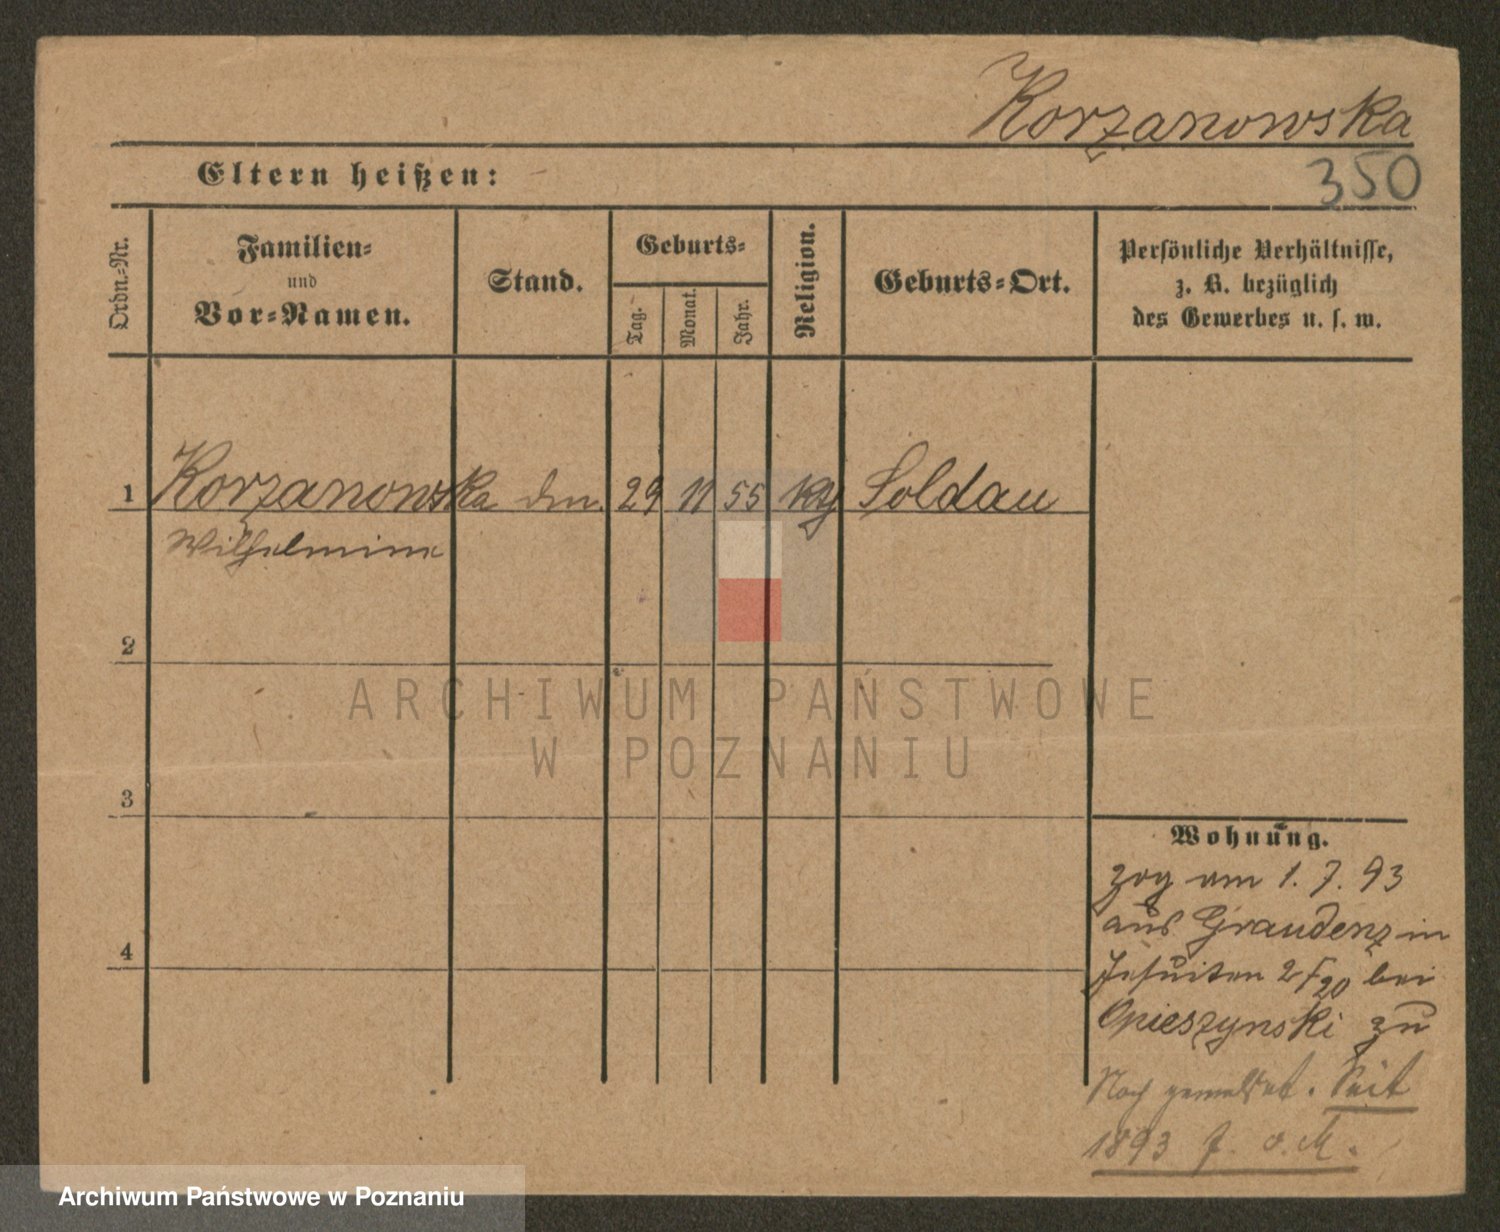 Korzanowska
Eltern heißen:
350
Ordn.=Nr.
Familien=
und
Vor=Namen.
Stand.
Geburts=
Tag.
Monat.
Jahr.
Religion.
Geburts=Ort.
Persönliche Verhältnisse,
z. B. bezüglich
des Gewerbes u. s. w.
1 Korzanowska 29 11 55 Soldau
Wilhelmine
2
3
4
Wohnung.
zog am 1. 7. 93
aus Graudenz in
Jesuiten bei
Opieszynski zu
Noch gemeldet. Seit
1893 f. o. M.
ARCHIWUM PAŃSTWOWE
W POZNANIU
Archiwum Państwowe w Poznaniu